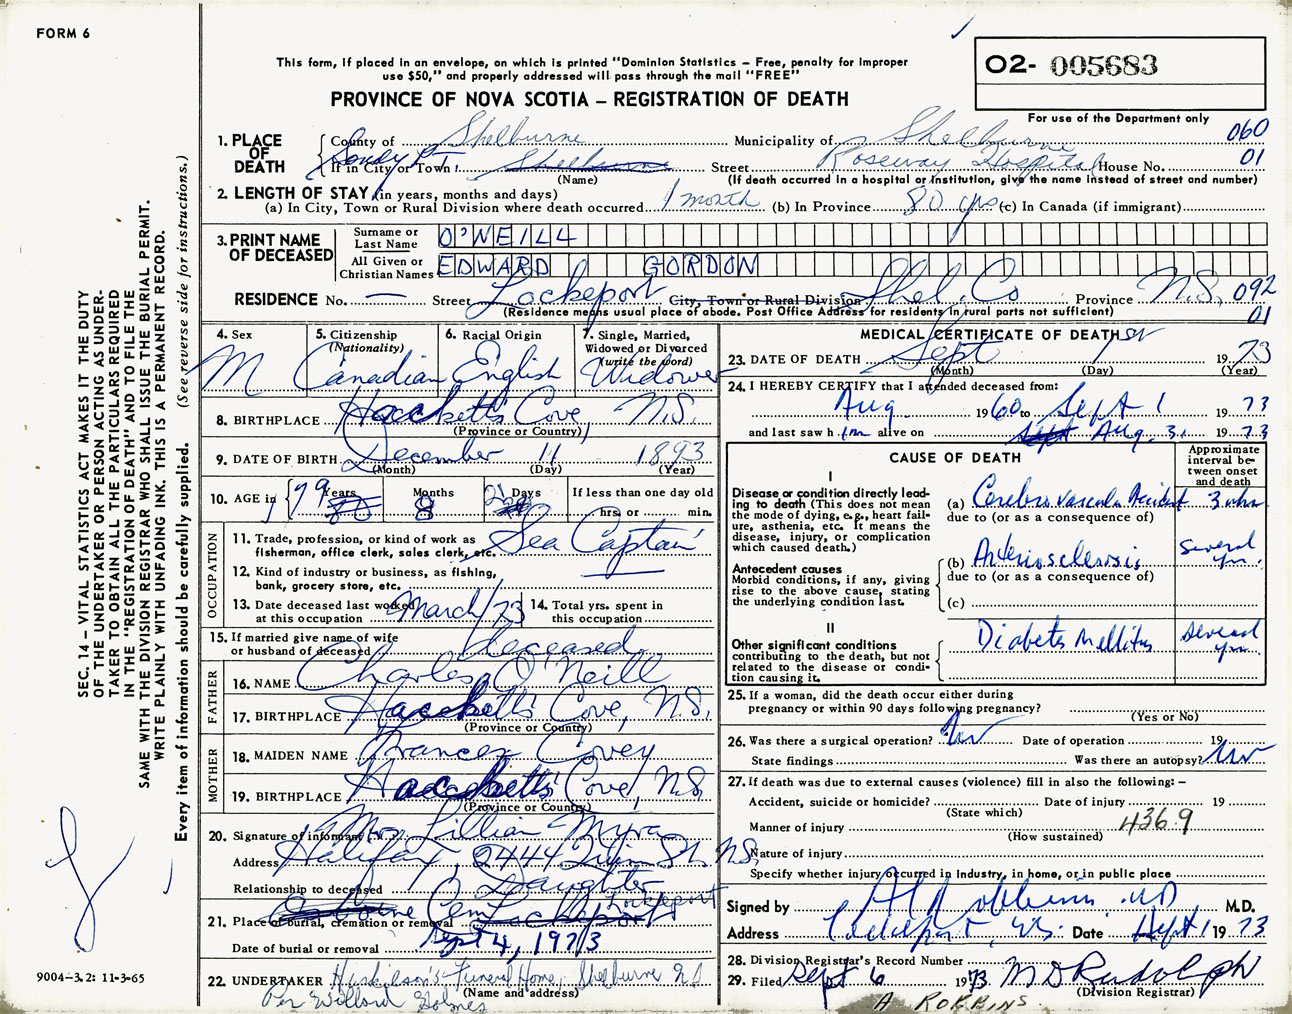 FORM 6
This form, if placed in an envelope, on which is printed "Dominion Statistics – Free, penalty for improper
use $50," and properly addressed will pass through the mail "FREE"
PROVINCE OF NOVA SCOTIA – REGISTRATION OF DEATH
O2- 005683
For use of the Department only
060
1. PLACE OF DEATH
County of Shelburne Municipality of Shelburne
Sandy Pt. If in City or Town Shelburne Street Roseway Hospital House No. 01
(Name) (If death occurred in a hospital or institution, give the name instead of street and number)
2. LENGTH OF STAY (in years, months and days)
(a) In City, Town or Rural Division where death occurred 1 month (b) In Province 80 yrs (c) In Canada (if immigrant)
3. PRINT NAME OF DECEASED
Surname or Last Name O'NEILL
All Given or Christian Names EDWARD GORDON
RESIDENCE No. — Street Lockeport City, Town or Rural Division Shel. Co Province N.S. 092
(Residence means usual place of abode. Post Office Address for residents in rural parts not sufficient) 01
4. Sex M
5. Citizenship (Nationality) Canadian
6. Racial Origin English
7. Single, Married, Widowed or Divorced (write the word) Widower
8. BIRTHPLACE Hacketts Cove N.S.
(Province or Country)
9. DATE OF BIRTH December 11 1893
(Month) (Day) (Year)
10. AGE in 79 Years 80 Months 8 Days If less than one day old hrs. or min.
OCCUPATION
11. Trade, profession, or kind of work as fisherman, office clerk, sales clerk, etc. Sea Captain
12. Kind of industry or business, as fishing, bank, grocery store, etc.
13. Date deceased last worked at this occupation March/73
14. Total yrs. spent in this occupation
15. If married give name of wife or husband of deceased deceased
FATHER
16. NAME Charles O'Neill
17. BIRTHPLACE Hacketts Cove, N.S.
(Province or Country)
MOTHER
18. MAIDEN NAME Frances Covey
19. BIRTHPLACE Hacketts Cove, N.S.
(Province or Country)
20. Signature of informant Mrs Lillian Myra
Address Halifax, 2444 St. N.S.
Relationship to deceased Daughter
21. Place of burial, cremation or removal Cem Lockeport Lockeport
Date of burial or removal Sept 4, 1973
22. UNDERTAKER Huskilson's Funeral Home, Shelburne N.S.
(Name and address)
Per Willard Holmes
MEDICAL CERTIFICATE OF DEATH
23. DATE OF DEATH Sept 1 1973
(Month) (Day) (Year)
24. I HEREBY CERTIFY that I attended deceased from:
Aug 1960 to Sept 1 1973
and last saw h im alive on Sept Aug. 31 1973
CAUSE OF DEATH
Approximate interval between onset and death
I
Disease or condition directly leading to death (This does not mean the mode of dying, e.g., heart failure, asthenia, etc. It means the disease, injury, or complication which caused death.)
(a) Cerebro vascular Accident 3 wks
due to (or as a consequence of)
Antecedent causes
Morbid conditions, if any, giving rise to the above cause, stating the underlying condition last.
(b) Arteriosclerosis Several yrs.
due to (or as a consequence of)
(c)
II
Other significant conditions contributing to the death, but not related to the disease or condition causing it.
Diabetes Mellitus Several yrs.
25. If a woman, did the death occur either during pregnancy or within 90 days following pregnancy?
(Yes or No)
26. Was there a surgical operation? No Date of operation 19
State findings Was there an autopsy? No
27. If death was due to external causes (violence) fill in also the following: –
Accident, suicide or homicide? Date of injury 19
(State which)
Manner of injury 436.9
(How sustained)
Nature of injury
Specify whether injury occurred in industry, in home, or in public place
Signed by A Robbins MD M.D.
Address Lockeport, N.S. Date Sept 1 1973
28. Division Registrar's Record Number
29. Filed Sept 6 1973 M D Rudolph
(Division Registrar)
A ROBBINS.
SEC. 14 – VITAL STATISTICS ACT MAKES IT THE DUTY
OF THE UNDERTAKER OR PERSON ACTING AS UNDER-
TAKER TO OBTAIN ALL THE PARTICULARS REQUIRED
IN THE "REGISTRATION OF DEATH" AND TO FILE THE
SAME WITH THE DIVISION REGISTRAR WHO SHALL ISSUE THE BURIAL PERMIT.
WRITE PLAINLY WITH UNFADING INK. THIS IS A PERMANENT RECORD.
Every item of information should be carefully supplied. (See reverse side for instructions.)
9004–3.2: 11-3-65